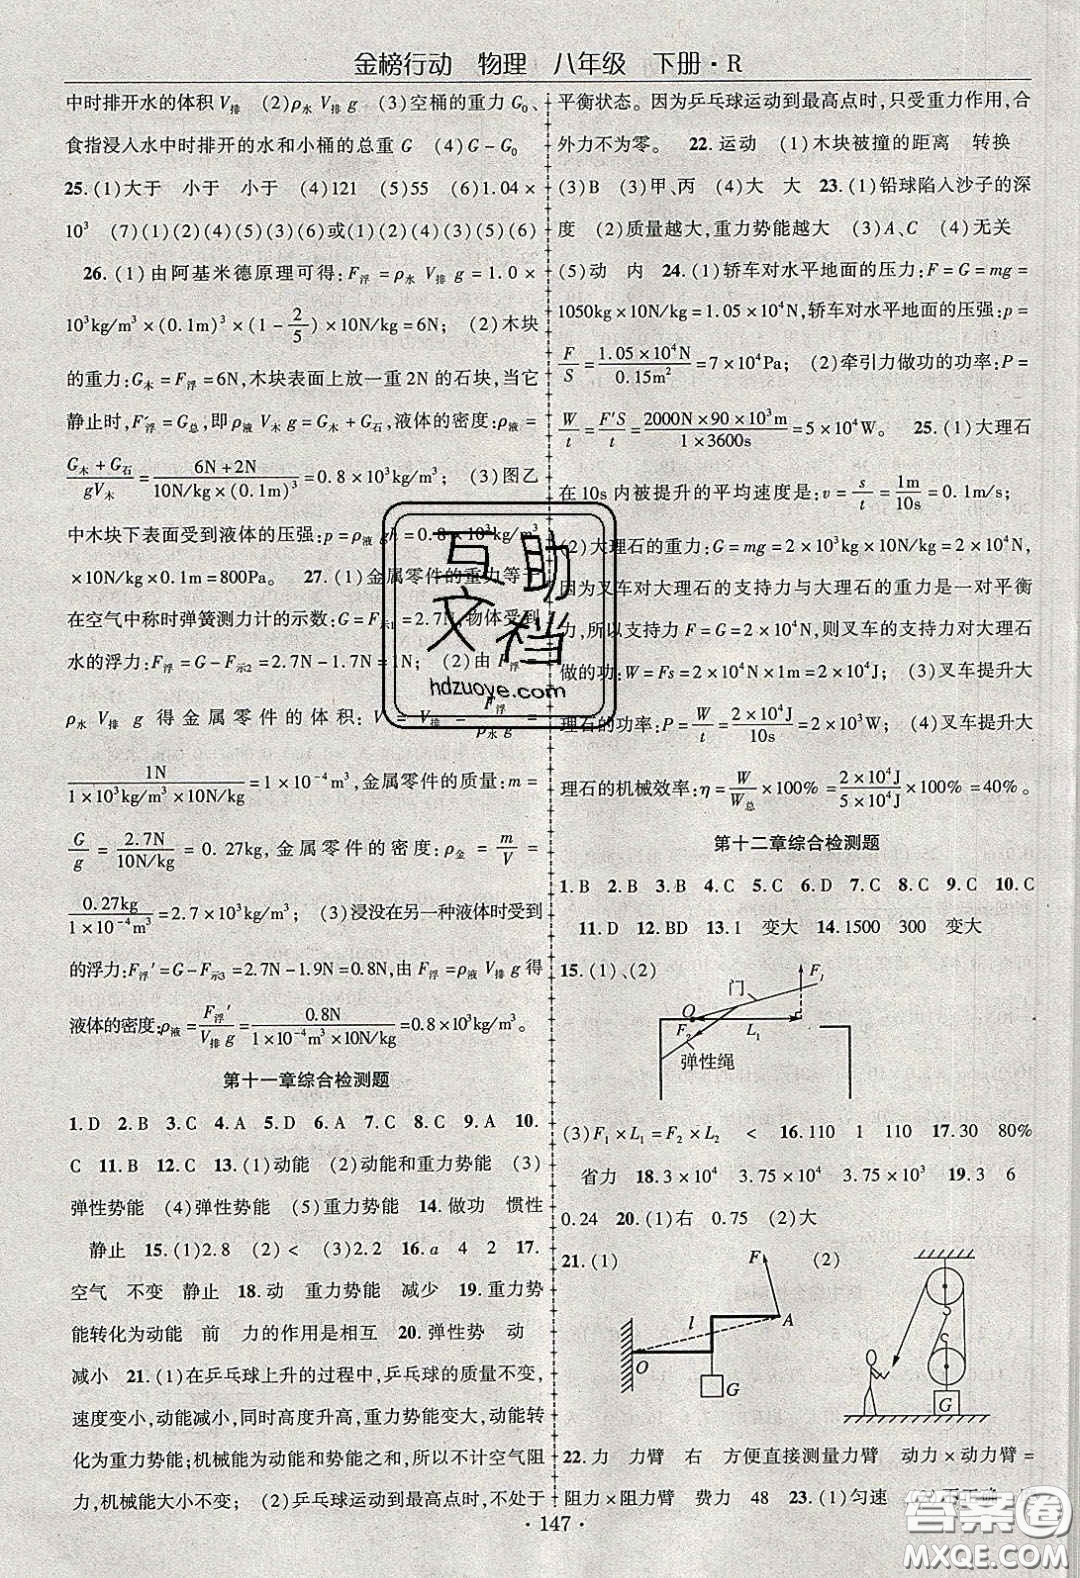 金榜行动 物理 八年级 下册·R
中时排开水的体积 V排 (2)ρ水 V排 g (3)空桶的重力 G₀、
食指浸入水中时排开的水和小桶的总重 G (4)G-G₀
25.(1)大于 小于 小于 (4)121 (5)55 (6)1.04×
10³ (7)(1)(2)(4)(5)(6)或(1)(2)(4)(3)(5)(6)
26.(1)由阿基米德原理可得:F浮=ρ水 V排 g=1.0×
10³kg/m³×(0.1m)³×(1-2/5)×10N/kg=6N; (2)木块
的重力:G木=F浮=6N,木块表面上放一重 2N 的石块,当它
静止时,F浮′=G总,即ρ液 V木 g=G木+G石,液体的密度:ρ液=
(G木+G石)/(gV木)=(6N+2N)/(10N/kg×(0.1m)³)=0.8×10³kg/m³; (3)图乙
中木块下表面受到液体的压强:p=ρ液 gh=0.8×10³kg/m³
×10N/kg×0.1m=800Pa。 27.(1)金属零件的重力等于
在空气中称时弹簧测力计的示数:G=F示1=2.7N,物体受到
水的浮力:F浮=G-F示2=2.7N-1.7N=1N; (2)由 F浮=
ρ水 V排 g 得金属零件的体积:V=V排=F浮/(ρ水 g)=
1N/(1×10³kg/m³×10N/kg)=1×10⁻⁴m³,金属零件的质量:m=
G/g=2.7N/(10N/kg)=0.27kg,金属零件的密度:ρ金=m/V=
0.27kg/(1×10⁻⁴m³)=2.7×10³kg/m³; (3)浸没在另一种液体时受到
的浮力:F浮′=G-F示3=2.7N-1.9N=0.8N,由 F浮=ρ液 V排 g 得
液体的密度:ρ液=F浮′/(V排 g)=0.8N/(1×10⁻⁴m³×10N/kg)=0.8×10³kg/m³。
第十一章综合检测题
1.D 2.B 3.C 4.A 5.D 6.A 7.C 8.C 9.A 10.
C 11.B 12.C 13.(1)动能 (2)动能和重力势能 (3)
弹性势能 (4)弹性势能 (5)重力势能 14.做功 惯性
静止 15.(1)2.8 (2)< (3)2.2 16.a 4 2 17.
空气 不变 静止 18.动 重力势能 减少 19.重力势
能转化为动能 前 力的作用是相互 20.弹性势 动
减小 21.(1)在乒乓球上升的过程中,乒乓球的质量不变,
速度变小,动能减小,同时高度升高,重力势能变大,动能转
化为重力势能;机械能为动能和势能之和,所以不计空气阻
力,机械能大小不变; (2)乒乓球运动到最高点时,不处于
平衡状态。因为乒乓球运动到最高点时,只受重力作用,合
外力不为零。 22.运动 (1)木块被撞的距离 转换
(3)B (3)甲、丙 (4)大 大 23.(1)铅球陷入沙子的深
度 (2)质量越大,重力势能越大 (3)A、C (4)无关
(5)动 内 24.(1)轿车对水平地面的压力:F=G=mg=
1050kg×10N/kg=1.05×10⁴N,轿车对水平地面的压强:p=
F/S=1.05×10⁴N/0.15m²=7×10⁴Pa; (2)牵引力做功的功率:P=
W/t=F′S/t=2000N×90×10³m/(1×3600s)=5×10⁴W。 25.(1)大理石
在 10s 内被提升的平均速度是:v=s/t=1m/10s=0.1m/s;
(2)大理石的重力:G=mg=2×10³kg×10N/kg=2×10⁴N,
因为叉车对大理石的支持力与大理石的重力是一对平衡
力,所以支持力 F=G=2×10⁴N,则叉车的支持力对大理石
做的功:W=Fs=2×10⁴N×1m=2×10⁴J; (3)叉车提升大
理石的功率:P=W/t=2×10⁴J/10s=2×10³W; (4)叉车提升大
理石的机械效率:η=W/W总×100%=2×10⁴J/5×10⁴J×100%=40%。
第十二章综合检测题
1.B 2.B 3.B 4.C 5.C 6.D 7.C 8.C 9.C 10.C
11.D 12.BD 13.1 变大 14.1500 300 变大
15.(1)、(2)
F₁
门
O
F₂
L₁
弹性绳
(3)F₁×L₁=F₂×L₂ < 16.110 1 110 17.30 80%
省力 18.3×10⁴ 3.75×10⁴ 3.75×10³ 19.3 6
0.24 20.(1)右 0.75 (2)大
21.(1) (2)
F
l
A
O
G
G
22.力 力臂 右 方便直接测量力臂 动力×动力臂=
阻力×阻力臂 费力 48 23.(1)匀速
·147·
互助
文档
hdzuoye.com
答案圈
MXQE.COM